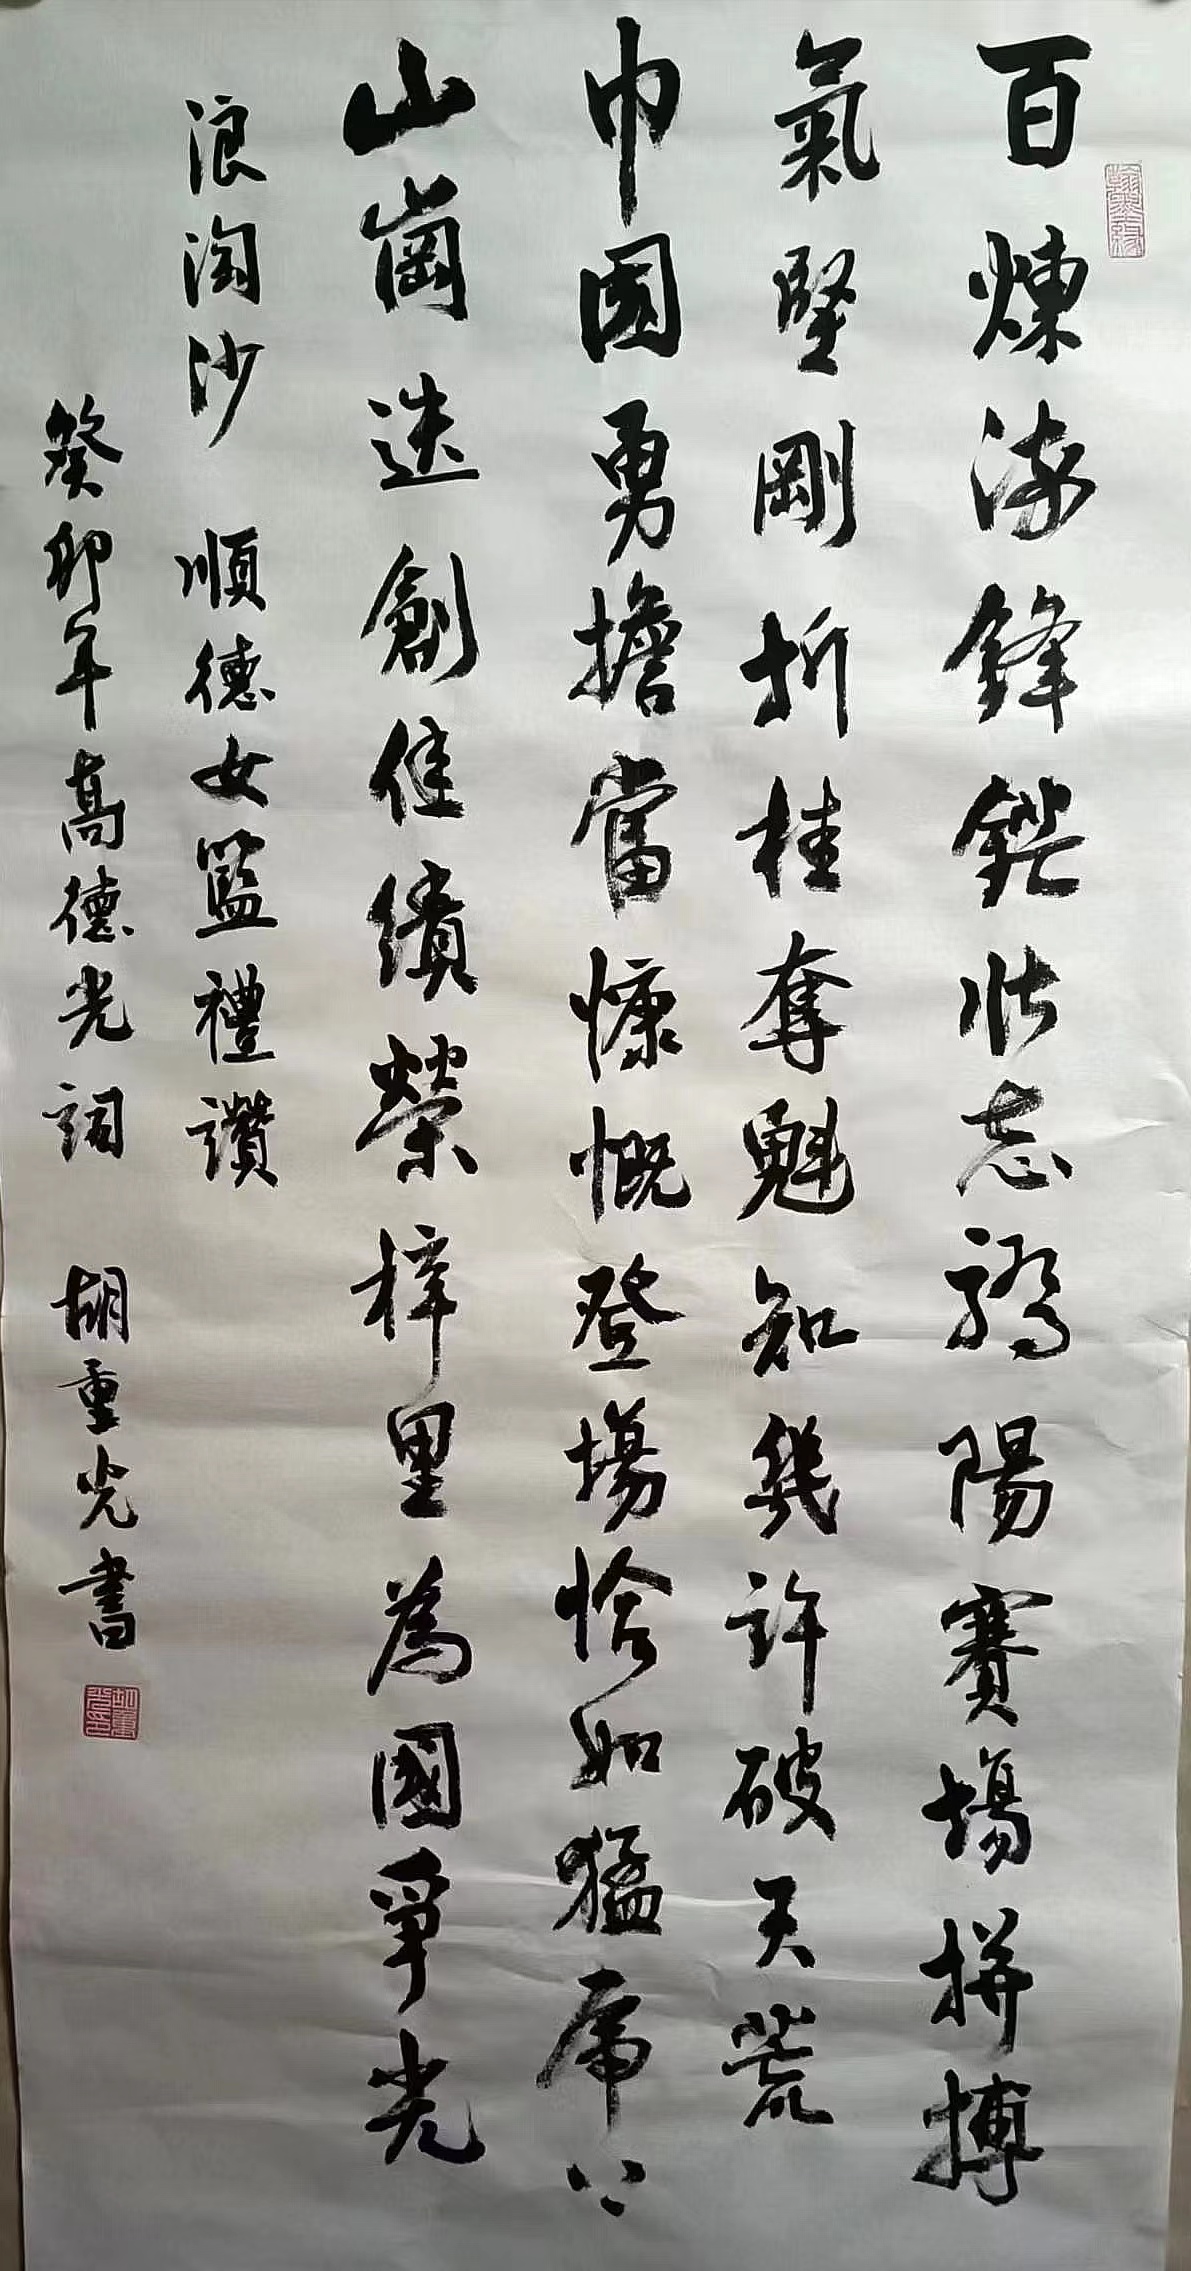 百煉淬鋒鋩壯志驕陽賽場拼搏
氣堅剛折桂奪魁知幾許破天荒
巾国勇擔當慷慨登場恰如猛虎下
山崗迭創佳績榮梓里為國爭光
浪淘沙 順德女籃禮讚
癸卯年高德光詞 胡重光書